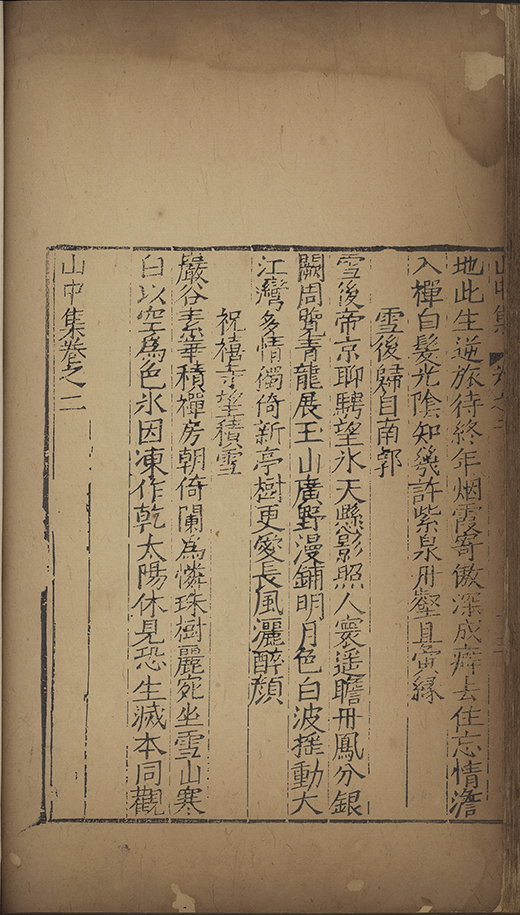 山中集 卷之二
地此生逆旅待終年烟霞寄傲深成癖去住忘情澹
入樿白髮光隂知幾許紫泉丹壑且夤縁
雪後歸自南郭
雪後帝京聊騁望氷天懸影照人寰遥瞻丹鳳分銀
闕周覽青龍展玉山廣野漫鋪明月色白波揺動大
江灣多情獨倚新亭樹更愛長風灑醉顔
祝禧寺望積雪
巖谷素華積禪房朝倚闌為憐珠樹麗宛坐雪山寒
白以空為色氷因凍作乾太陽休見恐生滅本同觀
山中集卷之二